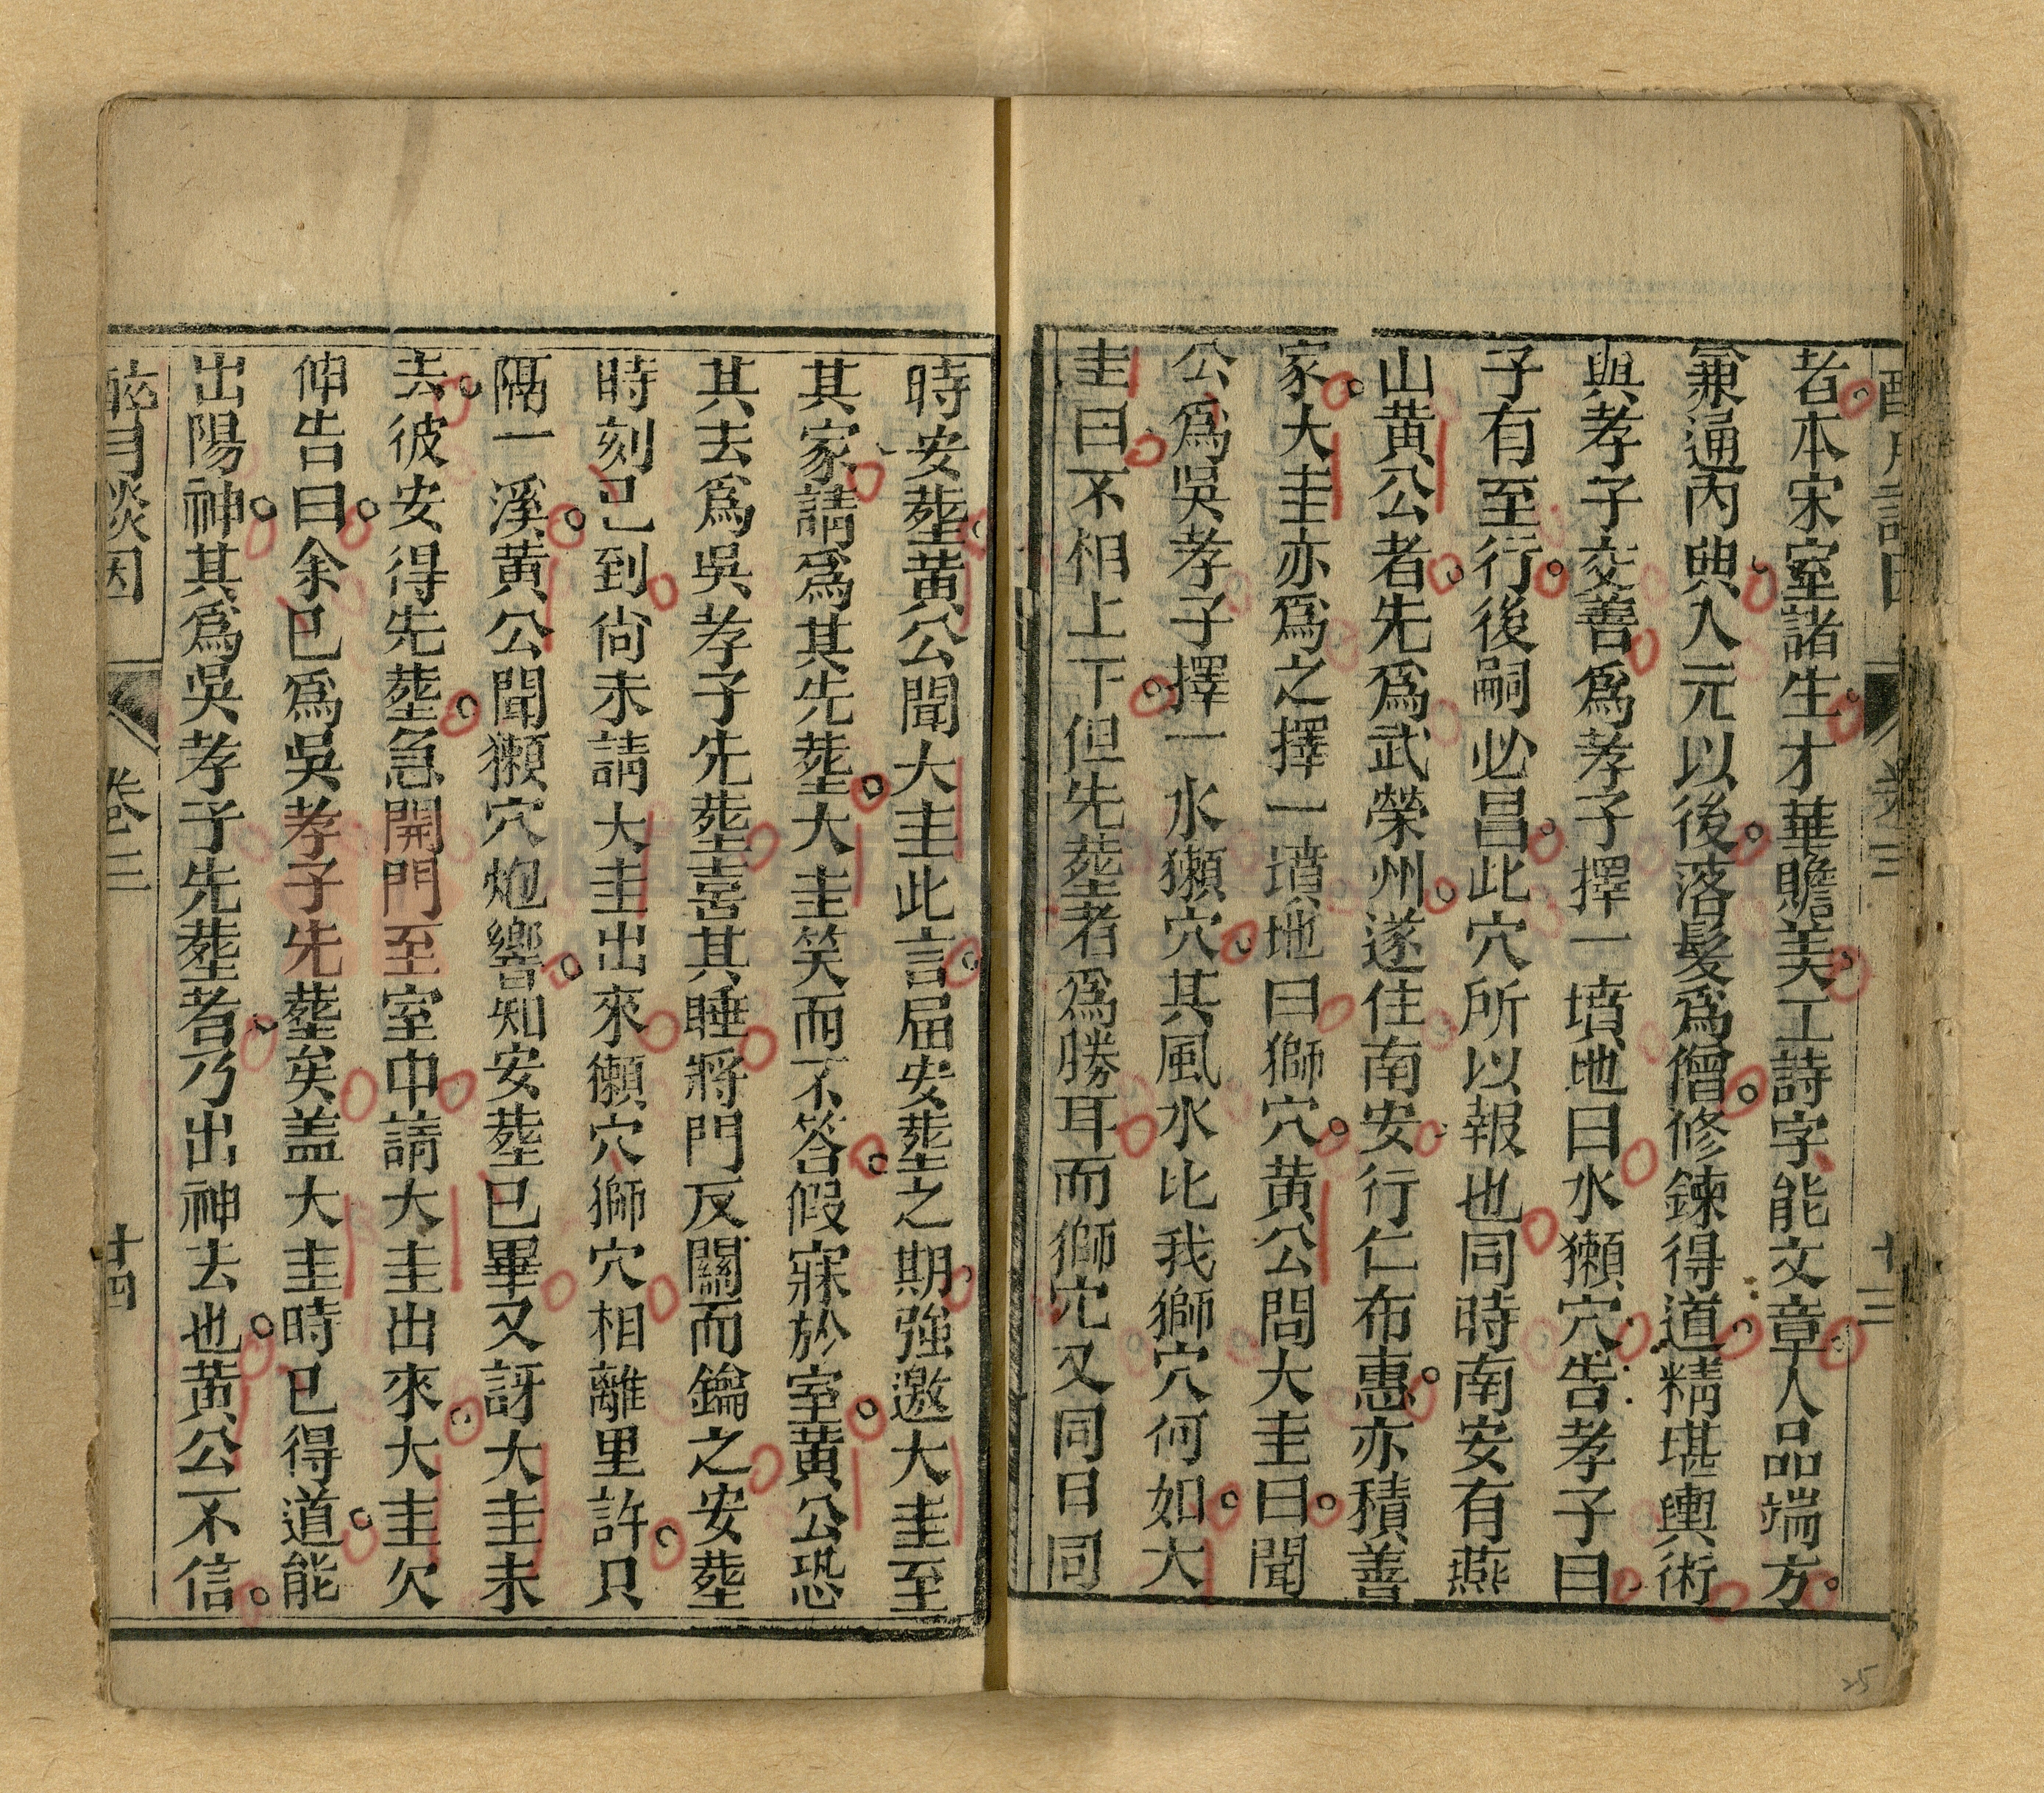 者本宋室諸生才華贍美工詩字能文章人品端方
兼通內典入元以後落髮爲僧修鍊得道精堪輿術
與孝子交善爲孝子擇一墳地曰水獺穴告孝子曰
子有至行後嗣必昌此穴所以報也同時南安有燕
山黄公者先爲武榮州遂住南安行仁布惠亦積善
家大圭亦爲之擇一墳地曰獅穴黄公問大圭曰聞
公爲吳孝子擇一水獺穴其風水比我獅穴何如大
圭曰不相上下但先塟者爲勝耳而獅穴又同日同
時安塟黄公聞大圭此言届安塟之期強邀大圭至
其家請爲其先塟大圭笑而不答假寐於室黄公恐
其去爲吳孝子先塟喜其睡將門反關而鑰之安塟
時刻已到尙未請大圭出來獺穴獅穴相離里許只
隔一溪黄公聞獺穴炮響知安塟已畢又訝大圭未
去彼安得先塟急開門至室中請大圭出來大圭欠
伸告曰余已爲吳孝子先塟矣盖大圭時已得道能
出陽神其爲吳孝子先塟者乃出神去也黄公不信
醉月談因
卷三
十四
卷三
十三
25